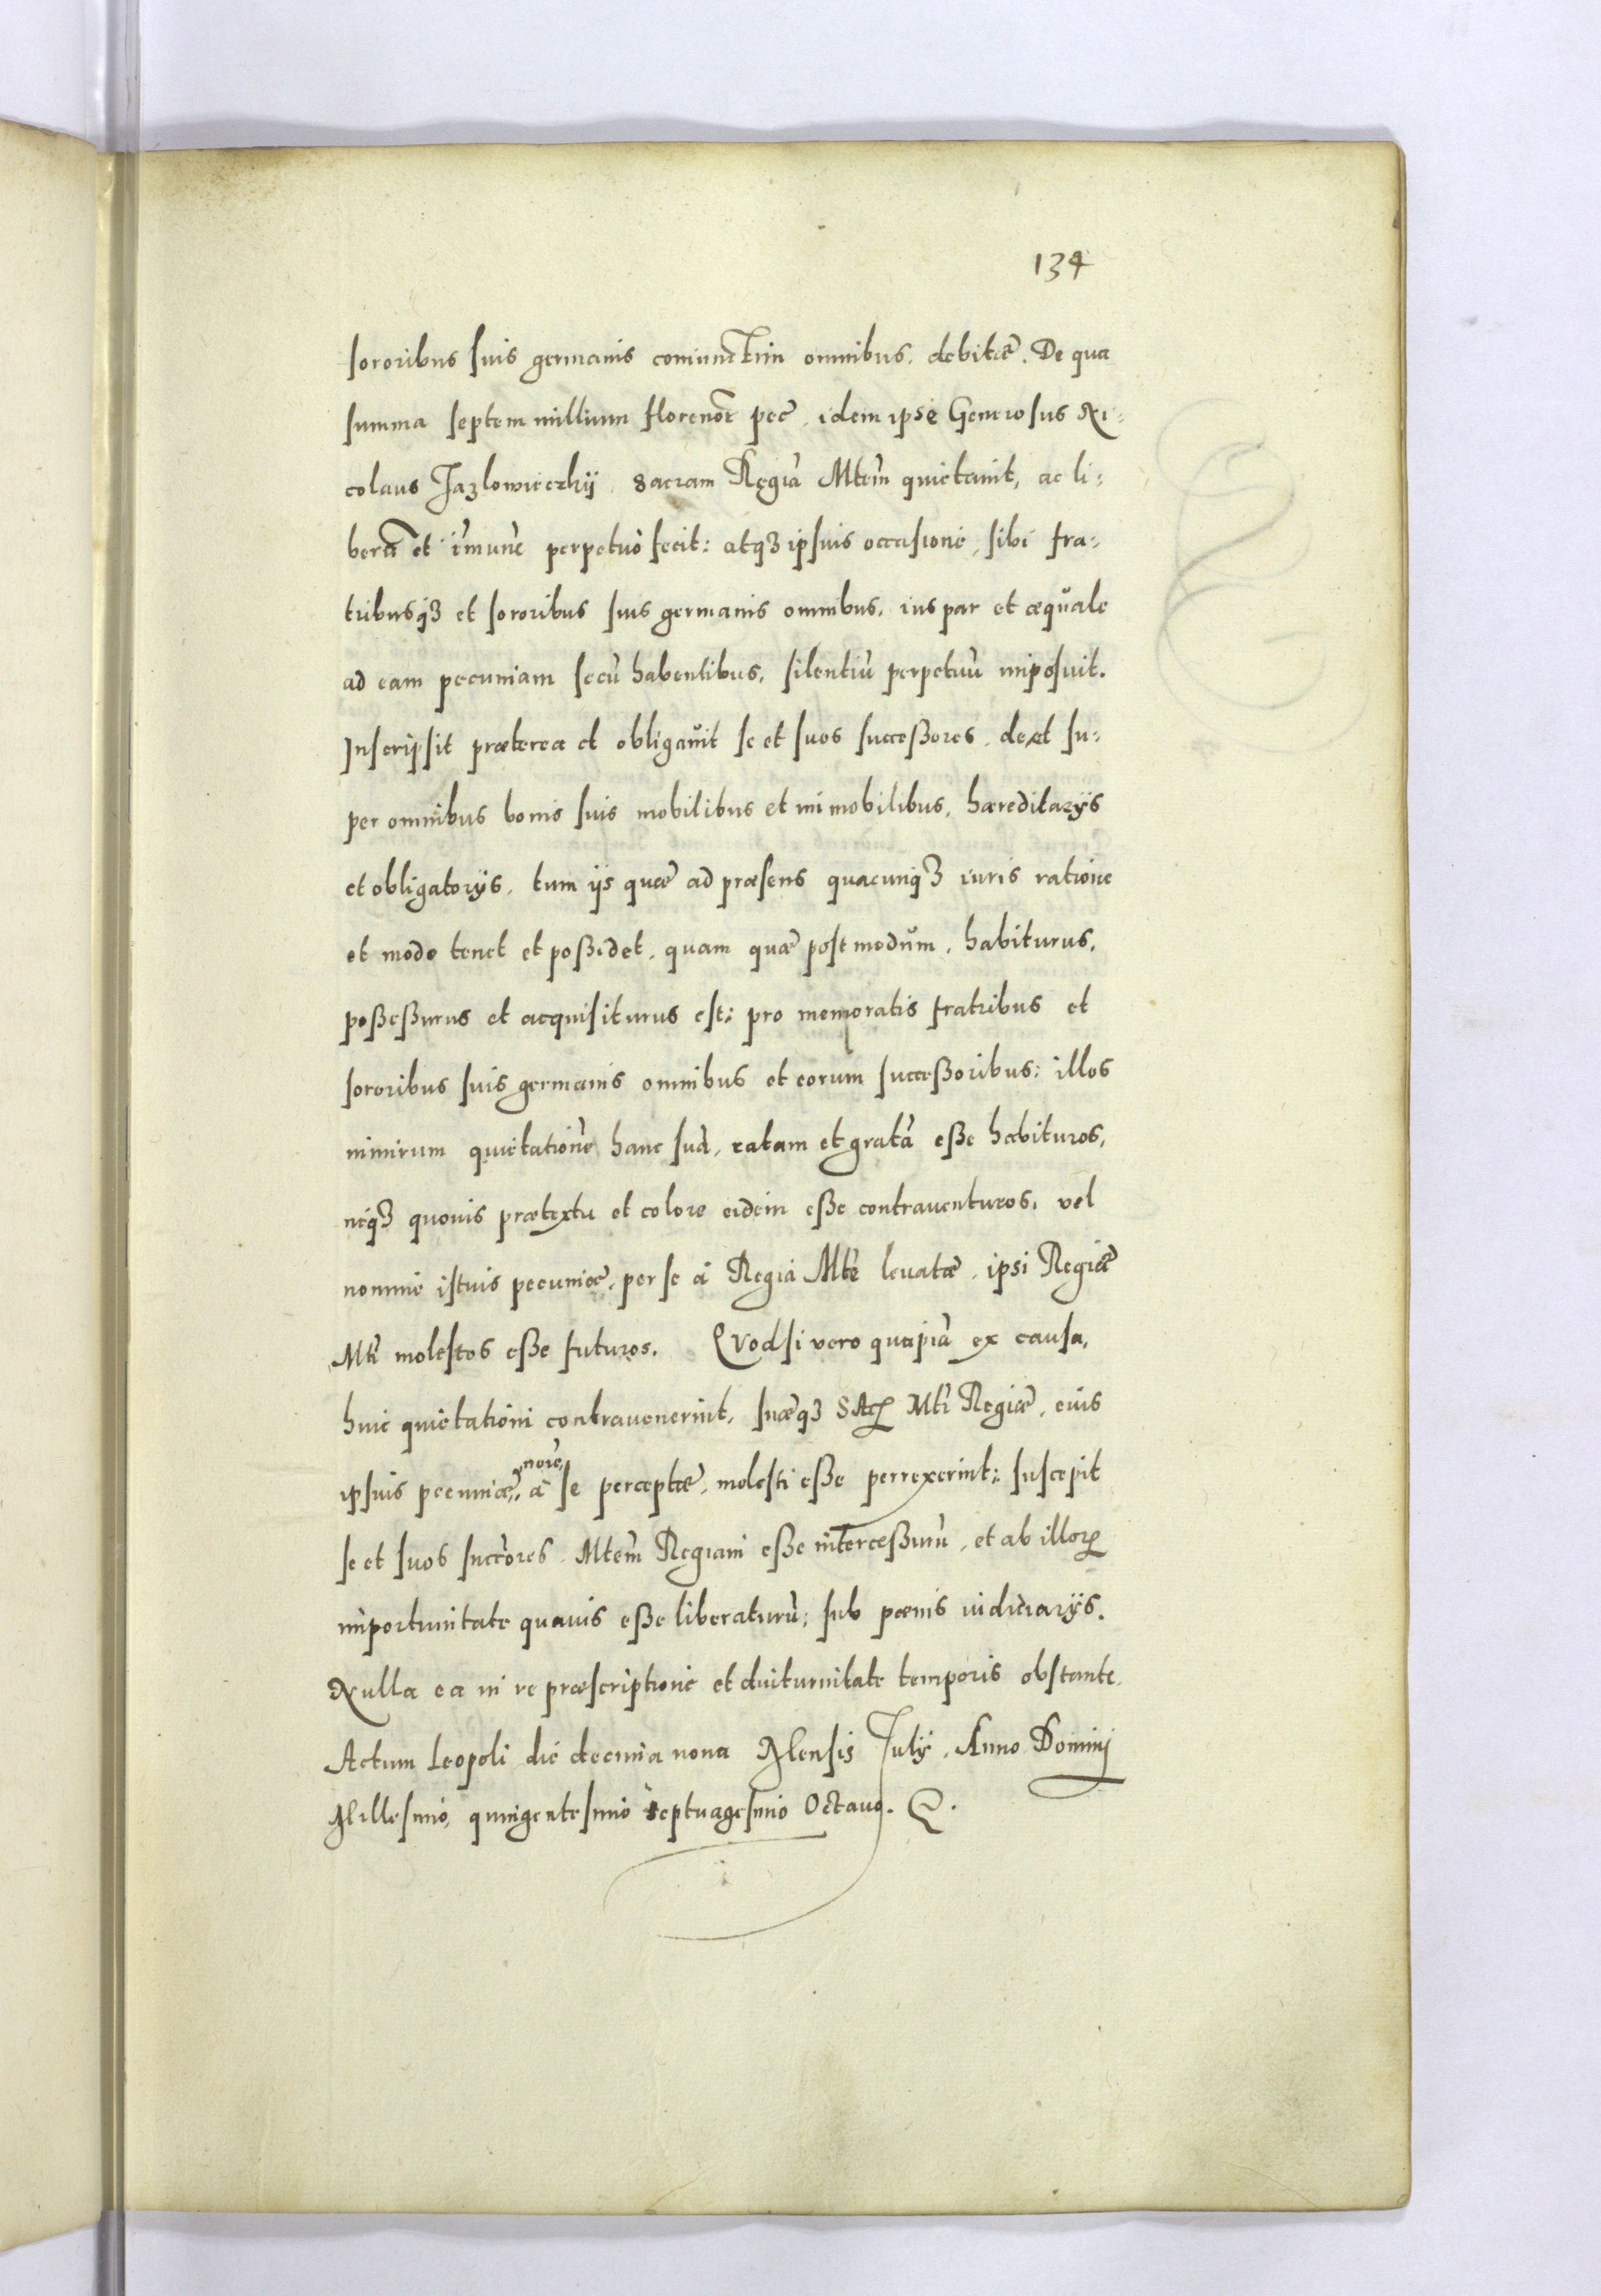 134
sororibus suis germanis coniunctim omnibus, debitæ. De qua
summa septem millium florenor pec̃, idem ipse Generosus Ni:
colaus Jazlowieczkÿ, Sacram Regiã Mtem̃ quietauit, ac li:
berã et im̃unẽ perpetuò fecit: atqȝ ipsius occasione, sibi fra:
tribusqȝ et sororibus suis germanis omnibus, ius par et æquale
ad eam pecuniam secũ habentibus, silentiũ perpetuũ imposuit.
Inscripsit præterea et obligauit se et suos successores, de et su:
per omnibus bonis suis mobilibus et immobilibus, hæreditarÿs
et obligatorÿs, tum ÿs quæ ad præsens quacunqȝ iuris ratione
et modo tenet et possidet, quam quæ postmodum, habiturus,
possessurus et acquisiturus est: pro memoratis fratribus et
sororibus suis germanis omnibus et eorum successoribus: illos
nimirum quietationẽ hanc suã, ratam et gratã esse habituros,
neqȝ quouis prætextu et colore eidem esse contrauenturos, vel
nomine istius pecuniæ, per se à Regia Mtẽ leuatæ, ipsi Regiæ
Mtĩ molestos esse futuros. Quodsi vero quapiã ex causa,
huic quietationi contrauenerint, suæqȝ SAcꝝ Mtĩ Regiæ, eius
ipsius pecuniæ, noiẽ, à se perceptæ, molesti esse perrexerint: suscepit
se et suos succ̃ores, Mtem̃ Regiam esse intercessurũ, et ab illoꝝ
importunitate quauis esse liberaturũ: sub pœnis iudiciarÿs.
Nulla ea in re præscriptione et diuturnitate temporis obstante.
Actum Leopoli die decima nona Mensis Julÿ, Anno Dominj
Millesimo, quingentesimo septuagesimo Octauo. Q.